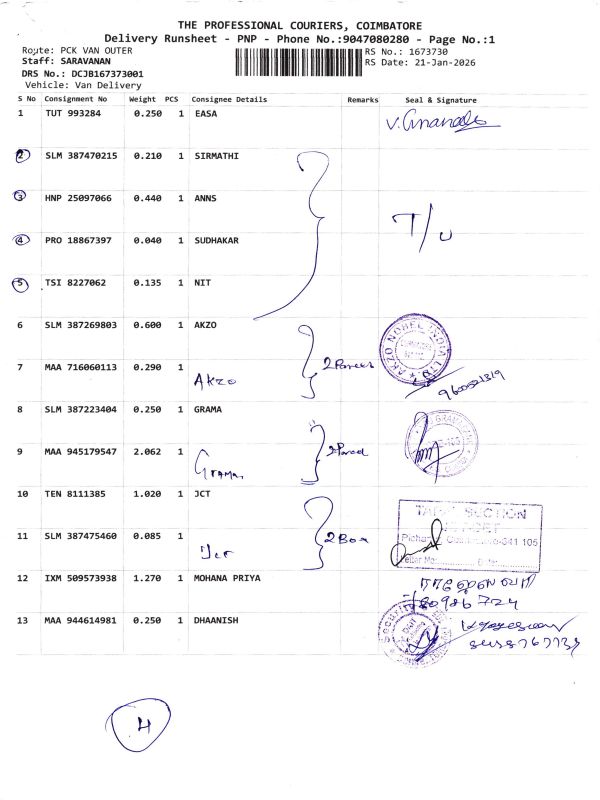 THE PROFESSIONAL COURIERS, COIMBATORE
Delivery Runsheet - PNP - Phone No.:9047080280 - Page No.:1
Route: PCK VAN OUTER RS No.: 1673730
Staff: SARAVANAN RS Date: 21-Jan-2026
DRS No.: DCJB167373001
Vehicle: Van Delivery
S No Consignment No Weight PCS Consignee Details Remarks Seal & Signature
1 TUT 993284 0.250 1 EASA
2 SLM 387470215 0.210 1 SIRMATHI
3 HNP 25097066 0.440 1 ANNS
4 PRO 18867397 0.040 1 SUDHAKAR
T/U
5 TSI 8227062 0.135 1 NIT
6 SLM 387269803 0.600 1 AKZO
AKZO NOBEL INDIA LTD
7 MAA 716060113 0.290 1
Akzo
8 SLM 387223404 0.250 1 GRAMA
9 MAA 945179547 2.062 1
Grama
10 TEN 8111385 1.020 1 JCT
SECTION
11 SLM 387475460 0.085 1 2 Box
Jct
12 IXM 509573938 1.270 1 MOHANA PRIYA
13 MAA 944614981 0.250 1 DHAANISH
4